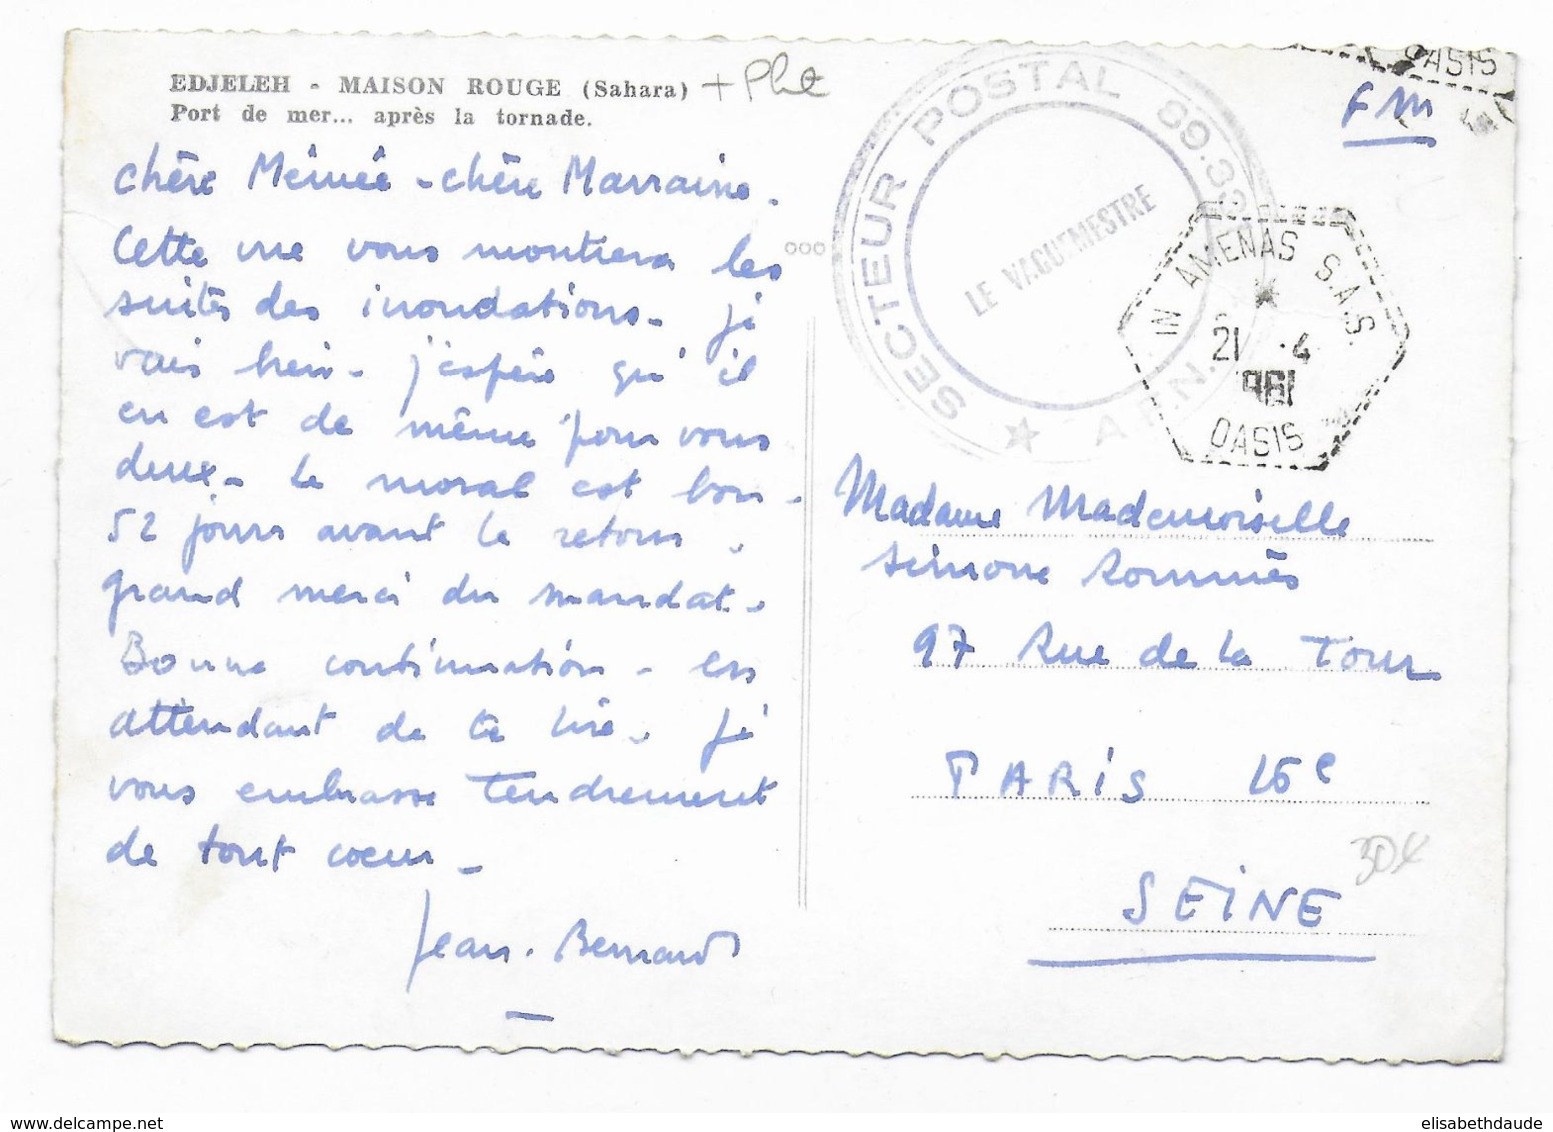 EDJELEH - MAISON ROUGE (Sahara)
Port de mer... après la tornade.
chère Mémée - chère Marraine.
Cette vue vous montrera les
suites des inondations. je
vais bien. j'espère qu'il
en est de même pour vous
deux. le moral est bon.
52 jours avant le retour.
grand merci du mandat.
Bonne continuation - en
attendant de te lire. je
vous embrasse tendrement
de tout coeur.
Jean-Bernard
FM
OASIS
SECTEUR POSTAL 89.
LE VAGUEMESTRE
IN AMENAS S.A.S.
21 4
1961
OASIS
Madame Mademoiselle
Simone
97 Rue de la Tour
PARIS 16e
SEINE
elisabethdaude